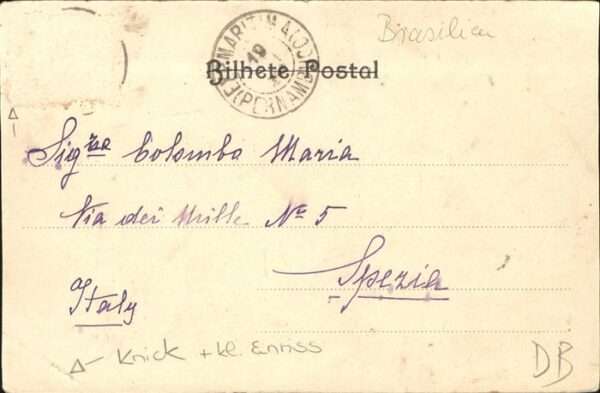 Brasilien
MARITIMA 4(00)
19
(PERNAMB
Bilhete Postal
Sigra Colombo Maria
Via dei Mille No 5
Spezia
Italy
Knick + kl. Einriss
DB